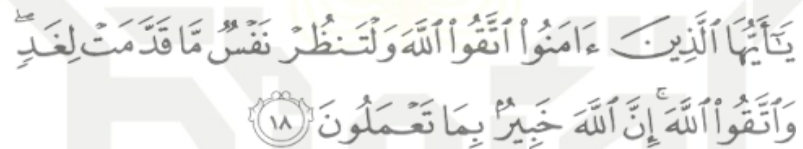 يَـٰٓأَيُّهَا ٱلَّذِينَ ءَامَنُوا۟ ٱتَّقُوا۟ ٱللَّهَ وَلْتَنظُرْ نَفْسٌ مَّا قَدَّمَتْ لِغَدٍۢ ۖ
وَٱتَّقُوا۟ ٱللَّهَ ۚ إِنَّ ٱللَّهَ خَبِيرٌۢ بِمَا تَعْمَلُونَ ١٨